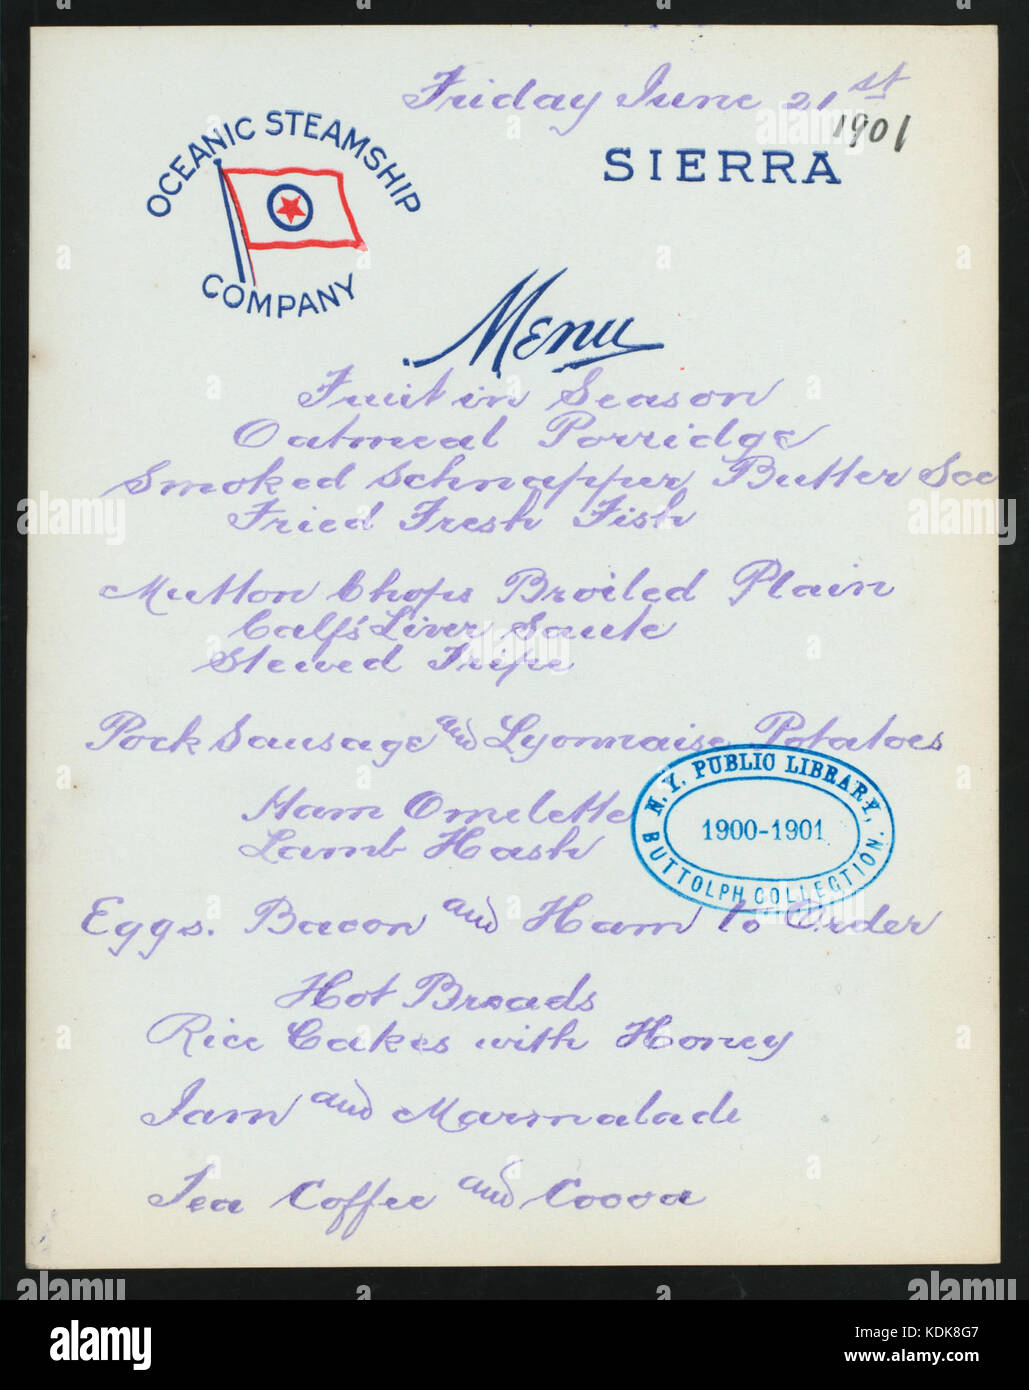 Friday June 21st
1901
OCEANIC STEAMSHIP
COMPANY
SIERRA
Menu
Fruit in Season
Oatmeal Porridge
Smoked Schnapper Butter Sce
Fried Fresh Fish
Mutton Chops Broiled Plain
Calf's Liver Saute
Stewed Tripe
Pork Sausage and Lyonnaise Potatoes
Ham Omelette
Lamb Hash
N.Y. PUBLIC LIBRARY,
1900-1901
BUTTOLPH COLLECTION.
Eggs. Bacon and Ham to Order
Hot Breads
Rice Cakes with Honey
Jam and Marmalade
Tea Coffee and Cocoa
alamy stock photo
alamy
Image ID: KDK8G7
www.alamy.com